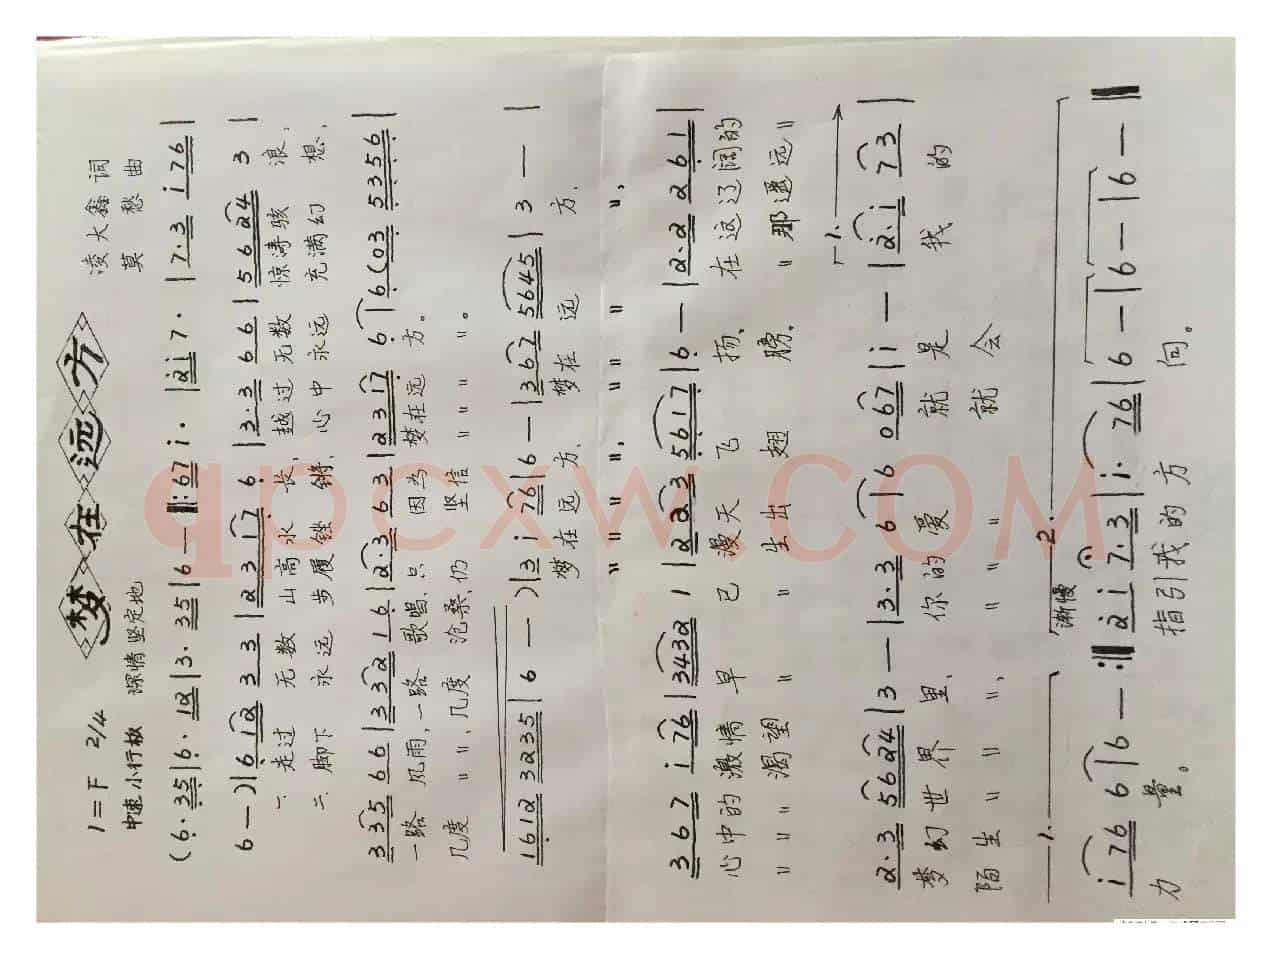 梦在远方
1=F 2/4
中速 小行板 深情坚定地
凌大鑫 词
莫愁 曲
(6· 35 | 6· 12 | 3· 35 | 6 — ‖: 67 i· | 2i 7· | 7·3 i76 |
6 — ) | 6 12 3 3 | 2 3 17 6 | 3·3 6 6 | 5 6 24 3 |
一. 走过 无数 山高水长, 越过无数 惊涛骇浪,
二. 脚下 永远 步履铿锵, 心中永远 充满幻想,
3 35 6 6 | 3 32 1 6 | 2·3 6 3 | 2 3 17 6 | 6 (03 5356 |
一路 风雨,一路 歌唱,只 因为 梦在远方。
几度 〃 〃,几度 沧桑,仍 坚信 〃 〃 〃 〃。
1612 3235 | 6 — ) | 3 i 76 | 6 — | 3 67 5645 | 3 — |
梦在远方, 梦在远方,
〃 〃 〃 〃, 〃 〃 〃 〃,
3 6 7 i 76 | 3432 1 | 2 23 5617 | 6 — | 2·2 2 61 |
心中的激情 早已 漫天飞扬, 在这辽阔的
〃 〃 〃 渴望 〃 〃 生出翅膀, 〃 那遥远〃
2·3 5624 | 3 — | 3·3 6 | 6 067 | i — | 2·i 73 |
梦幻世界里, 你的爱 就是 我的
陌生 〃 〃 〃, 〃 〃 〃 就会
1.
1. 2. 渐慢
i 76 6 | 6 — :‖ 2 i 7·3 | i· 76 | 6 — | 6 — | 6 — ‖
力量。 指引我的方向。
qpcxw.COM